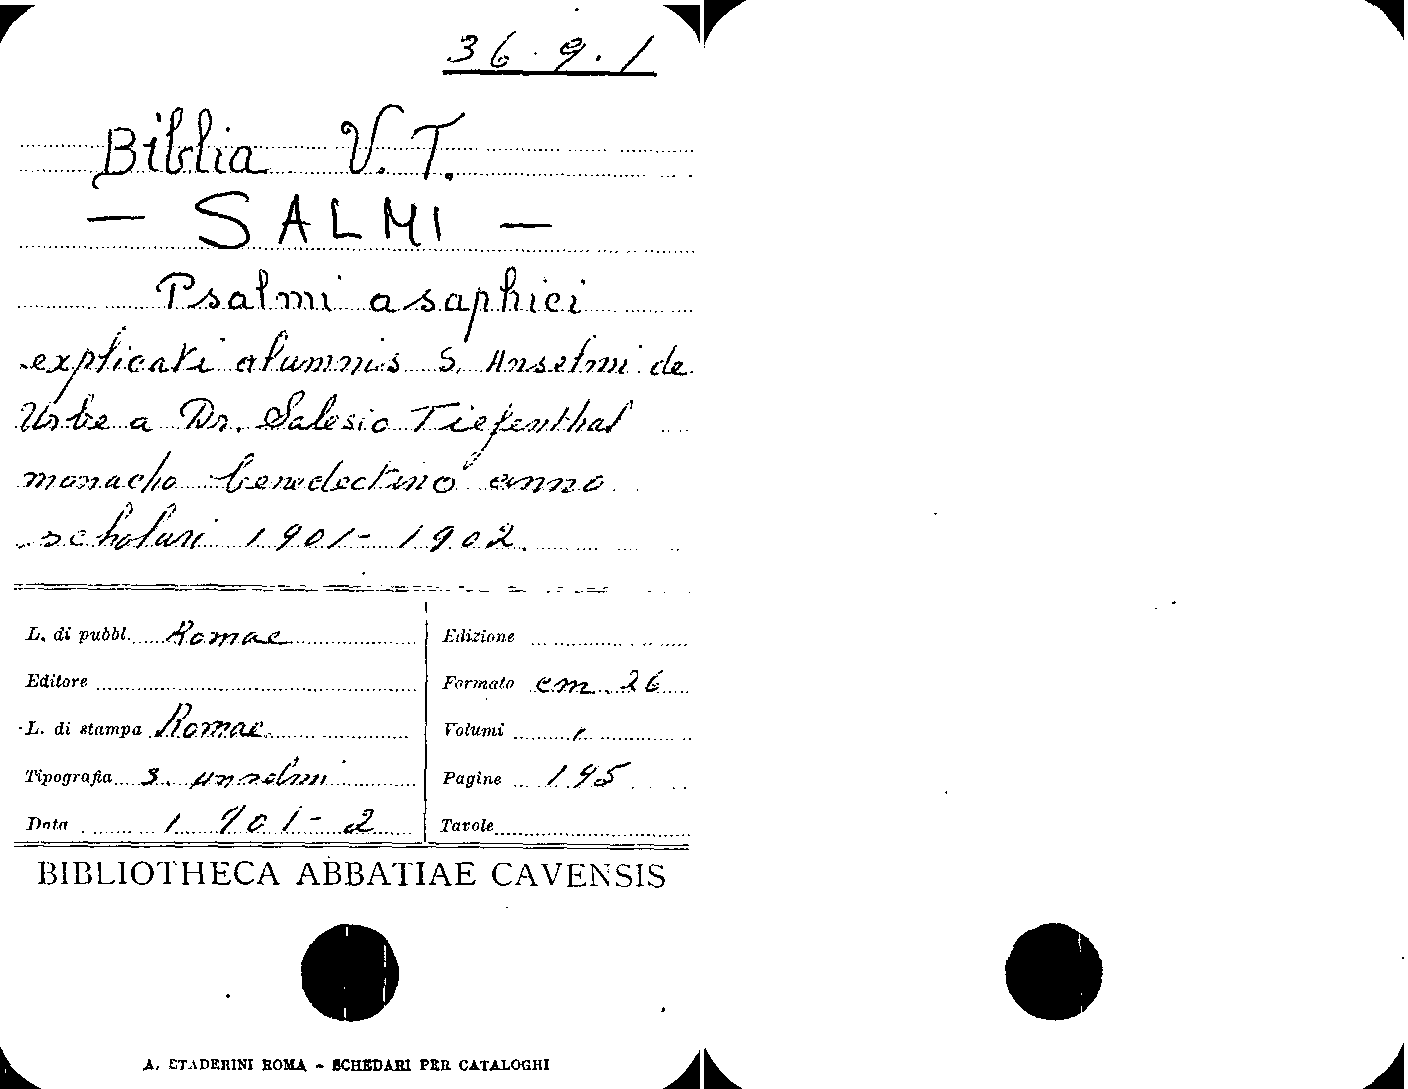 36.9.1
Biblia V.T.
— SALMI —
Psalmi asaphici
explicati alumnis S. Anselmi de
Urbe a Dr. Salesio Tiefenthal
monacho benedectino anno
scholari 1901-1902.
L. di pubbl. Romae
Edizione
Editore
Formato cm. 26
L. di stampa Romae
Volumi 1
Tipografia S. Anselmi
Pagine 195
Data 1901-2
Tavole
BIBLIOTHECA ABBATIAE CAVENSIS
A. STADERINI ROMA - SCHEDARI PER CATALOGHI